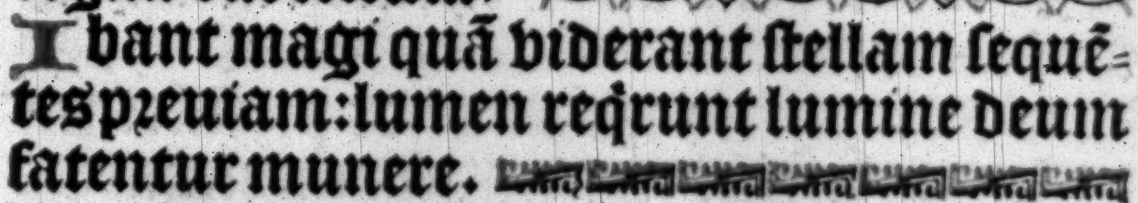 Ibant magi quã viderant stellam sequẽ-
tes preuiam: lumen reqͥrunt lumine deum
fatentur munere.